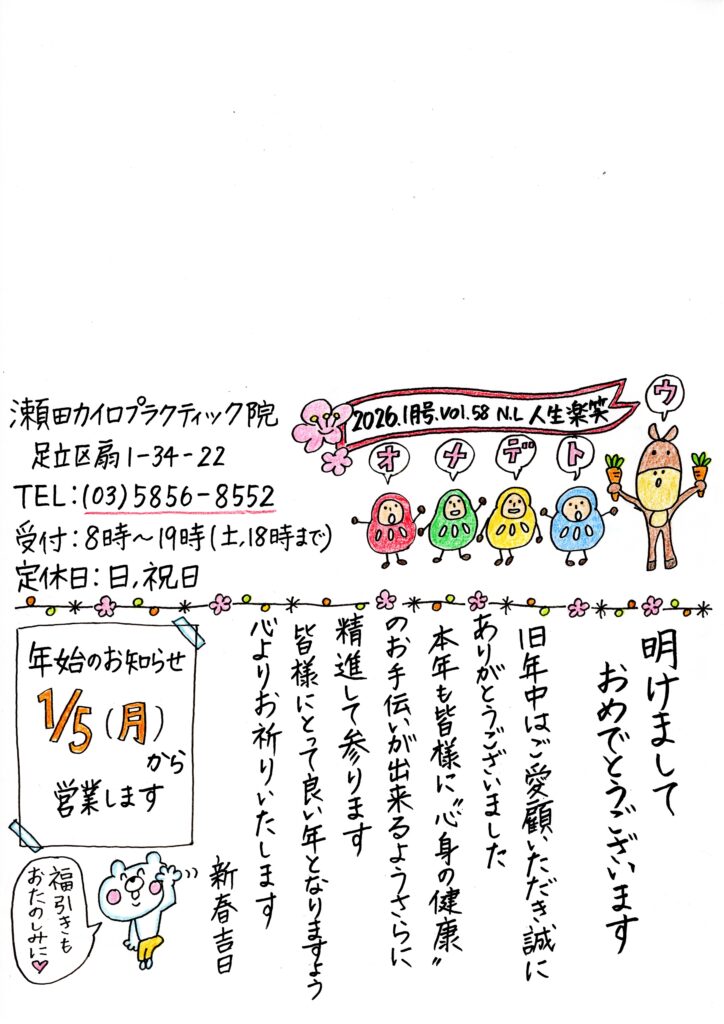 瀬田カイロプラクティック院
足立区扇1-34-22
TEL:(03)5856-8552
受付:8時〜19時(土,18時まで)
定休日:日,祝日
2026.1月号.Vol.58 N.L 人生楽笑
オ
メ
デ
ト
ウ
明けまして
おめでとうございます
旧年中はご愛顧いただき誠に
ありがとうございました
本年も皆様に"心身の健康"
のお手伝いが出来るようさらに
精進して参ります
皆様にとって良い年となりますよう
心よりお祈りいたします
新春吉日
年始のお知らせ
1/5(月)
から
営業します
福引きも
おたのしみに♡